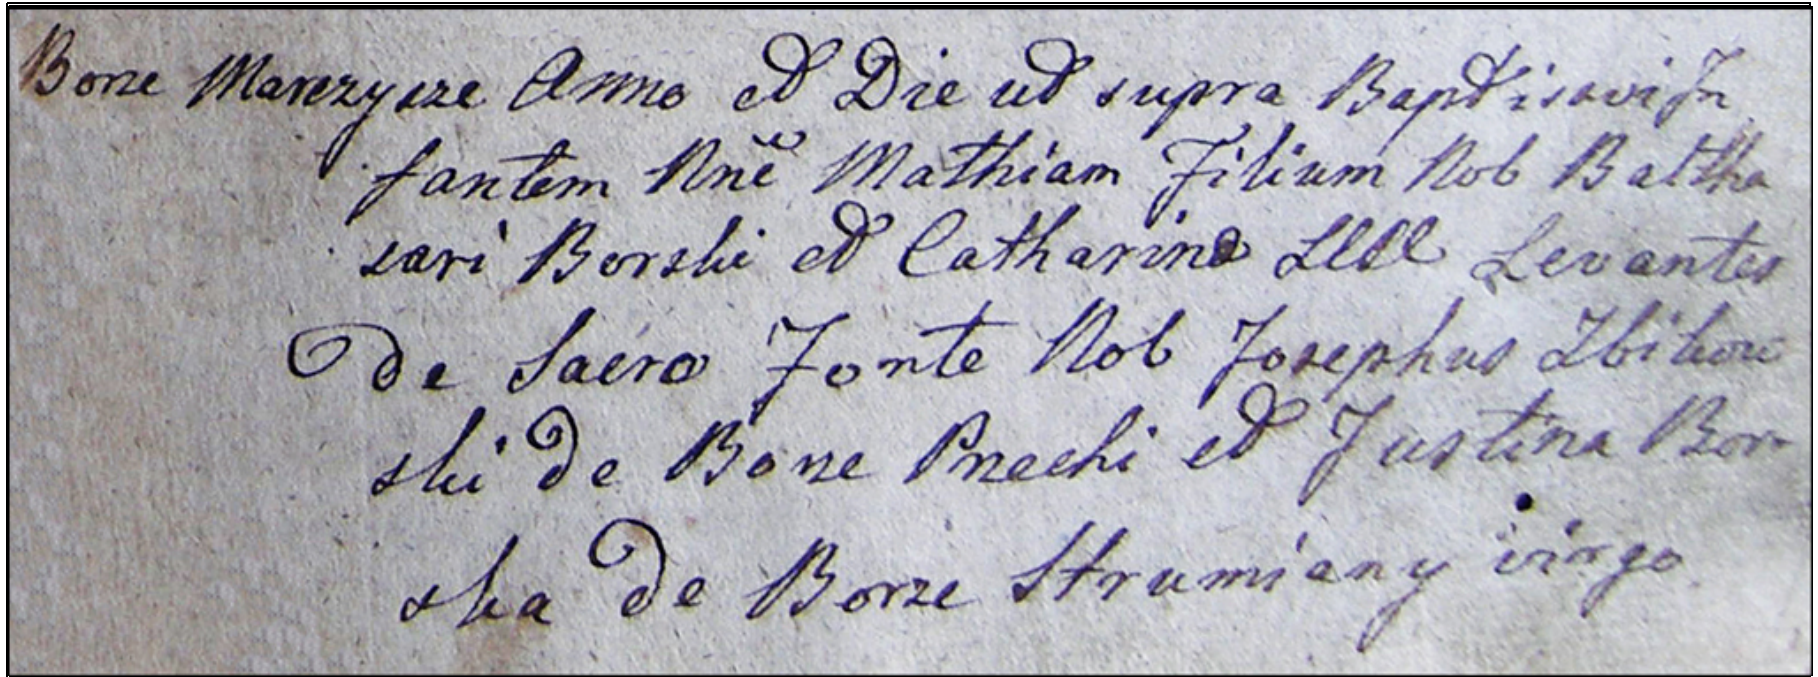 Borze Marczysze Anno et Die ut supra Baptisavi In
fantem Nnē Mathiam Filium Nob Baltha
sari Borski et Catharina LLCC Levantes
de Sacro Fonte Nob Josephus Zbikow
ski de Borze Przechi et Justina Bor
ska de Borze Strumiany virgo